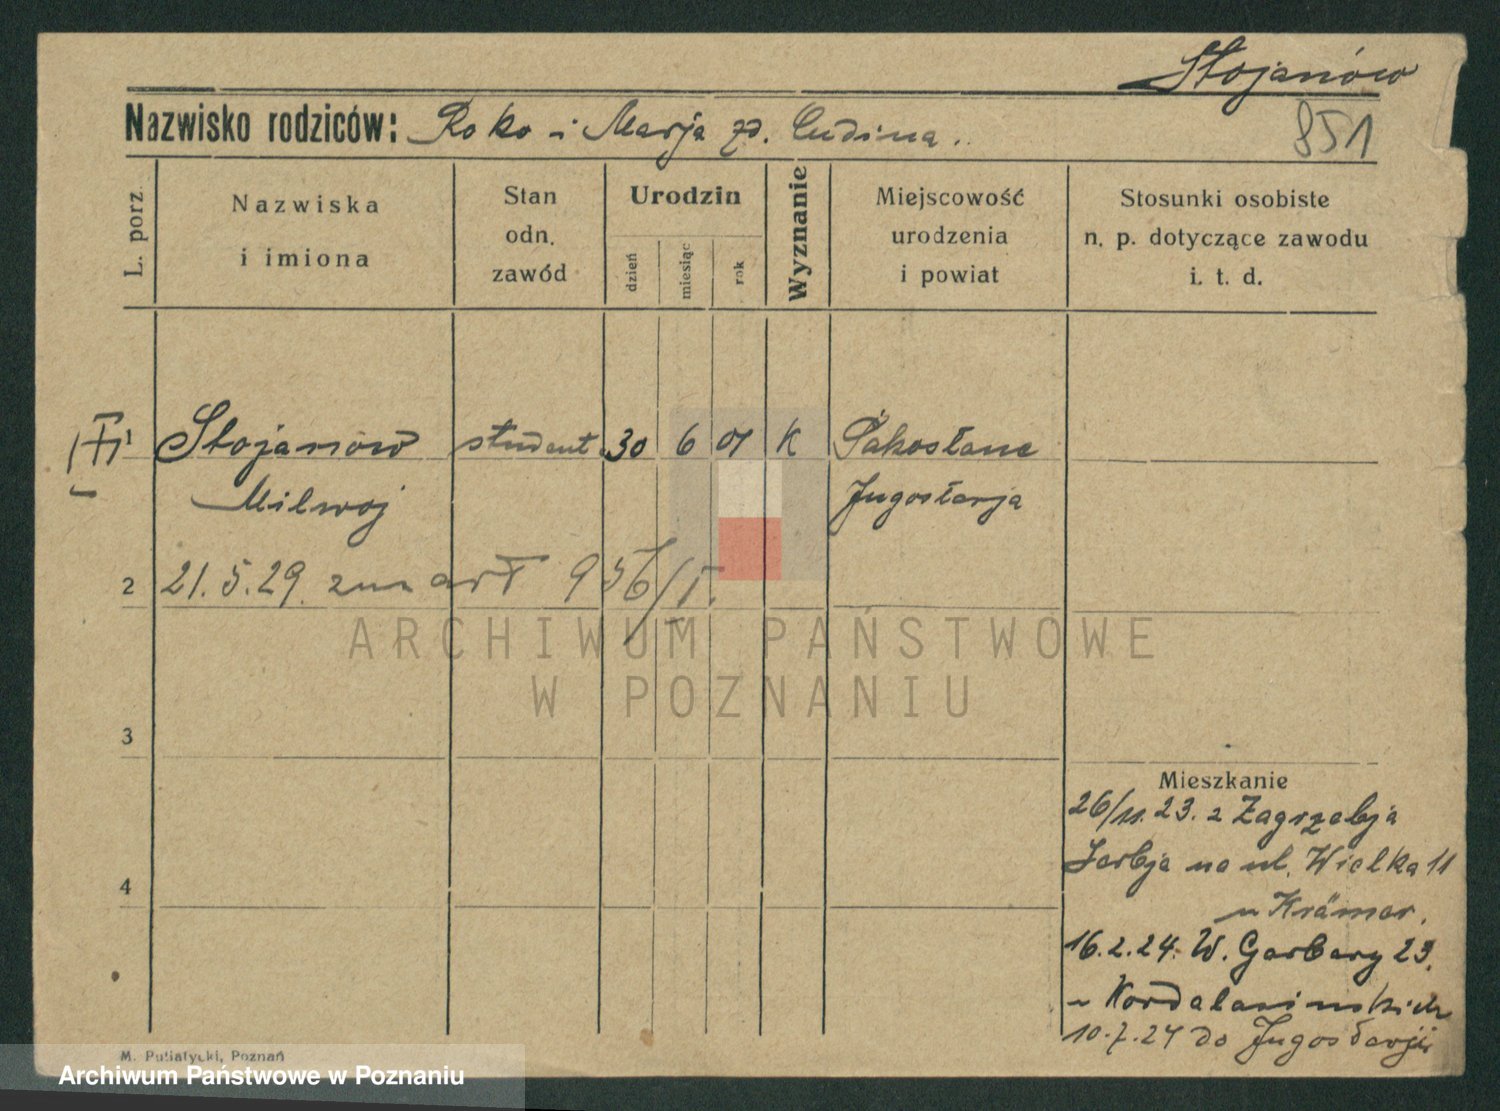 Stojanów
Nazwisko rodziców: Roko i Marja zd. Cudina.
851
L. porz
Nazwiska
i imiona
Stan
odn.
zawód
Urodzin
dzień
miesiąc
rok
Wyznanie
Miejscowość
urodzenia
i powiat
Stosunki osobiste
n. p. dotyczące zawodu
i. t. d.
1 Stojanów student 30 6 01 K Pakosłane
Milwoj Jugosłavja
2 21.5.29.
ARCHIWUM PAŃSTWOWE
W POZNANIU
3
Mieszkanie
26/11.23. z Zagrzebja
Serbja na ul. Wielka 11
4
u Krämer.
16.2.24. W. Garbary 23.
u
10.7.24 do Jugosłavji
M. Putiatycki, Poznań
Archiwum Państwowe w Poznaniu